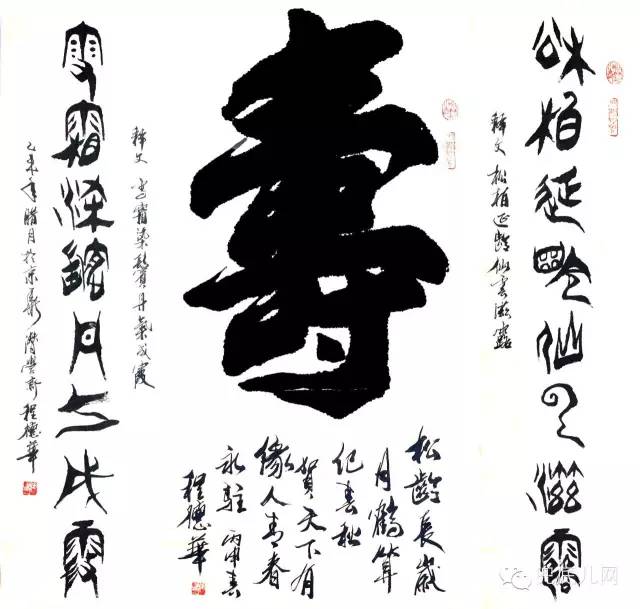 松柏延齡仙雲滋露
釋文 松柏延齡仙雲滋露
壽
松齡長歲
月鶴算
紀春秋
賀天下有
緣人青春
永駐 丙申春
程德華
雪霜染鬢丹氣成霞
釋文 雪霜染鬢丹氣成霞
乙未年臘月於京 程德華